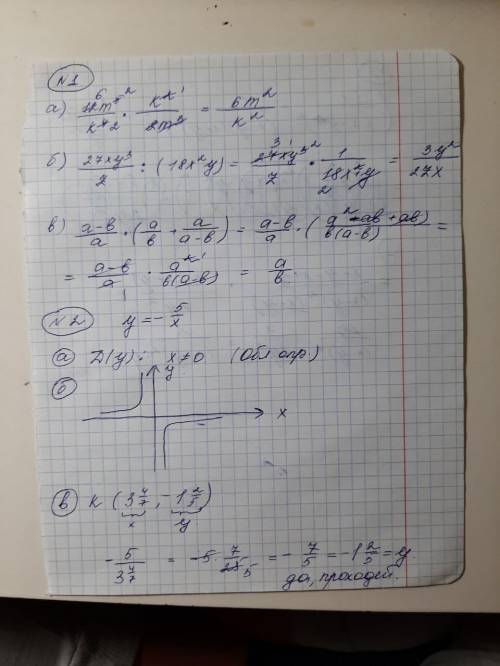 №1
а) 12m⁵/k⁴ · k²/2m³ = 6m²/k²
б) 27xy³/z : (18x²y) = 27xy³/z · 1/18x²y = 3y²/2zx
в) a-b/a · (a/b + a/a-b) = a-b/a · (a²-ab+ab)/b(a-b) =
= a-b/a · a²/b(a-b) = a/b
№2 y = -5/x
а) D(y): x≠0 (Обл опр.)
y
б)
x
в) K (3 4/7, -1 2/5)
x y
-5/3 4/7 = -5 · 7/25 5 = -7/5 = -1 2/5 = y
да, проходит.